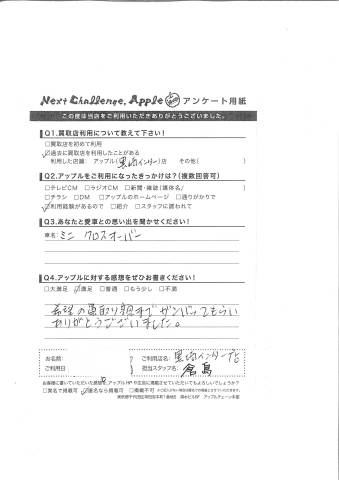 Next Challenge. Apple アンケート用紙
この度は当店をご利用いただきありがとうございました。
Q1.買取店利用について教えて下さい!
□買取店を初めて利用
□過去に買取店を利用したことがある
利用した店舗: アップル(黒崎インター)店 その他( )
Q2.アップルをご利用になったきっかけは?(複数回答可)
□テレビCM □ラジオCM □新聞・雑誌(媒体名/ )
□チラシ □DM □アップルのホームページ □通りがかりで
□利用経験があるので □紹介 □スタッフに誘われて
Q3.あなたと愛車との思い出を聞かせください!
車名: ミニ クロスオーバー
Q4.アップルに対する感想をぜひお書きください!
□大満足 □満足 □普通 □もう少し □不満
希望の買取り額までガンバってもらい
ありがとうございました。
お名前:
ご利用店名: 黒崎インター店
ご利用日
担当スタッフ名:
お客様に書いていただいた感想を、アップルHPや広告に掲載させていただいてもよろしいでしょうか?
□実名で掲載可 □匿名なら掲載可 □掲載不可